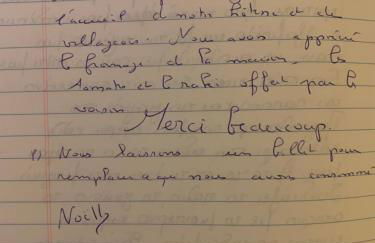 l'accueil de notre hôtesse et de
villageois. Nous avons apprécié
le fromage de la maison, les
tomates et le raki offert par le
voisin
Merci beaucoup.
Nous laissons un billet pour
remplacer ce que nous avons consommé